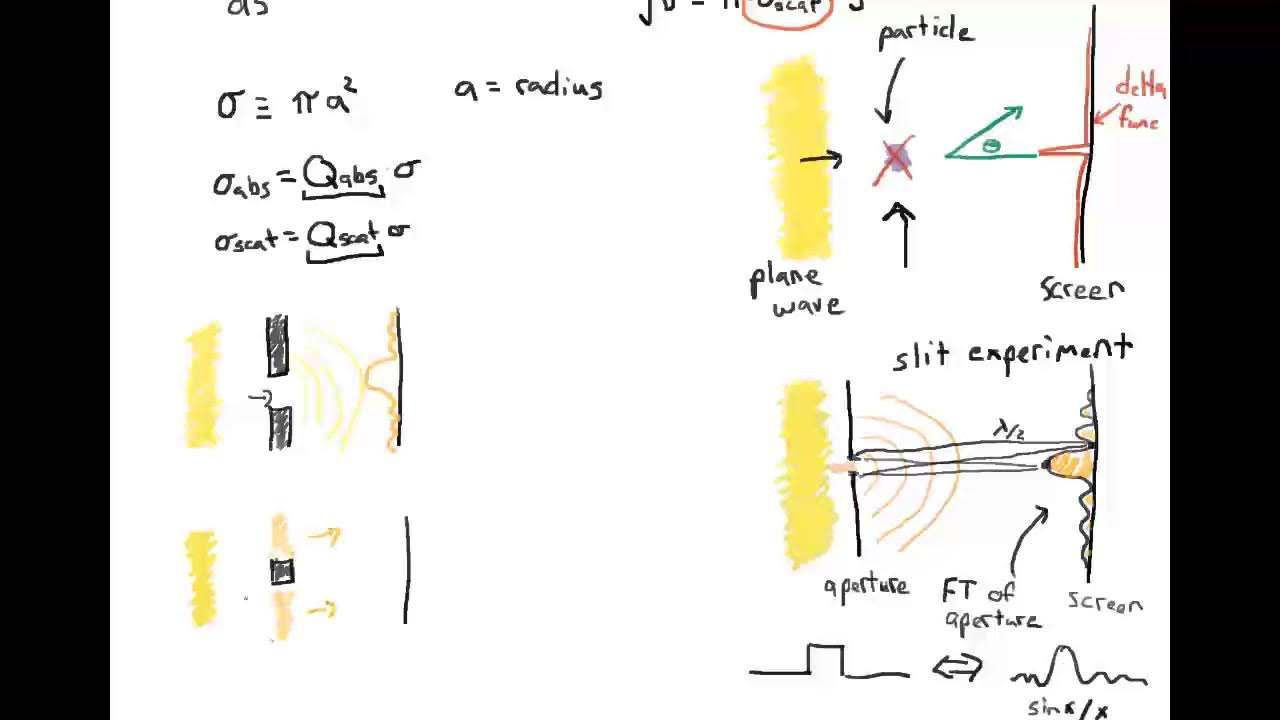 ds
σ ≡ πa²
a = radius
σabs = Qabs σ
σscat = Qscat σ
particle
delta
func
θ
plane
wave
screen
slit experiment
λ/2
aperture
FT of
aperture
screen
sinx/x